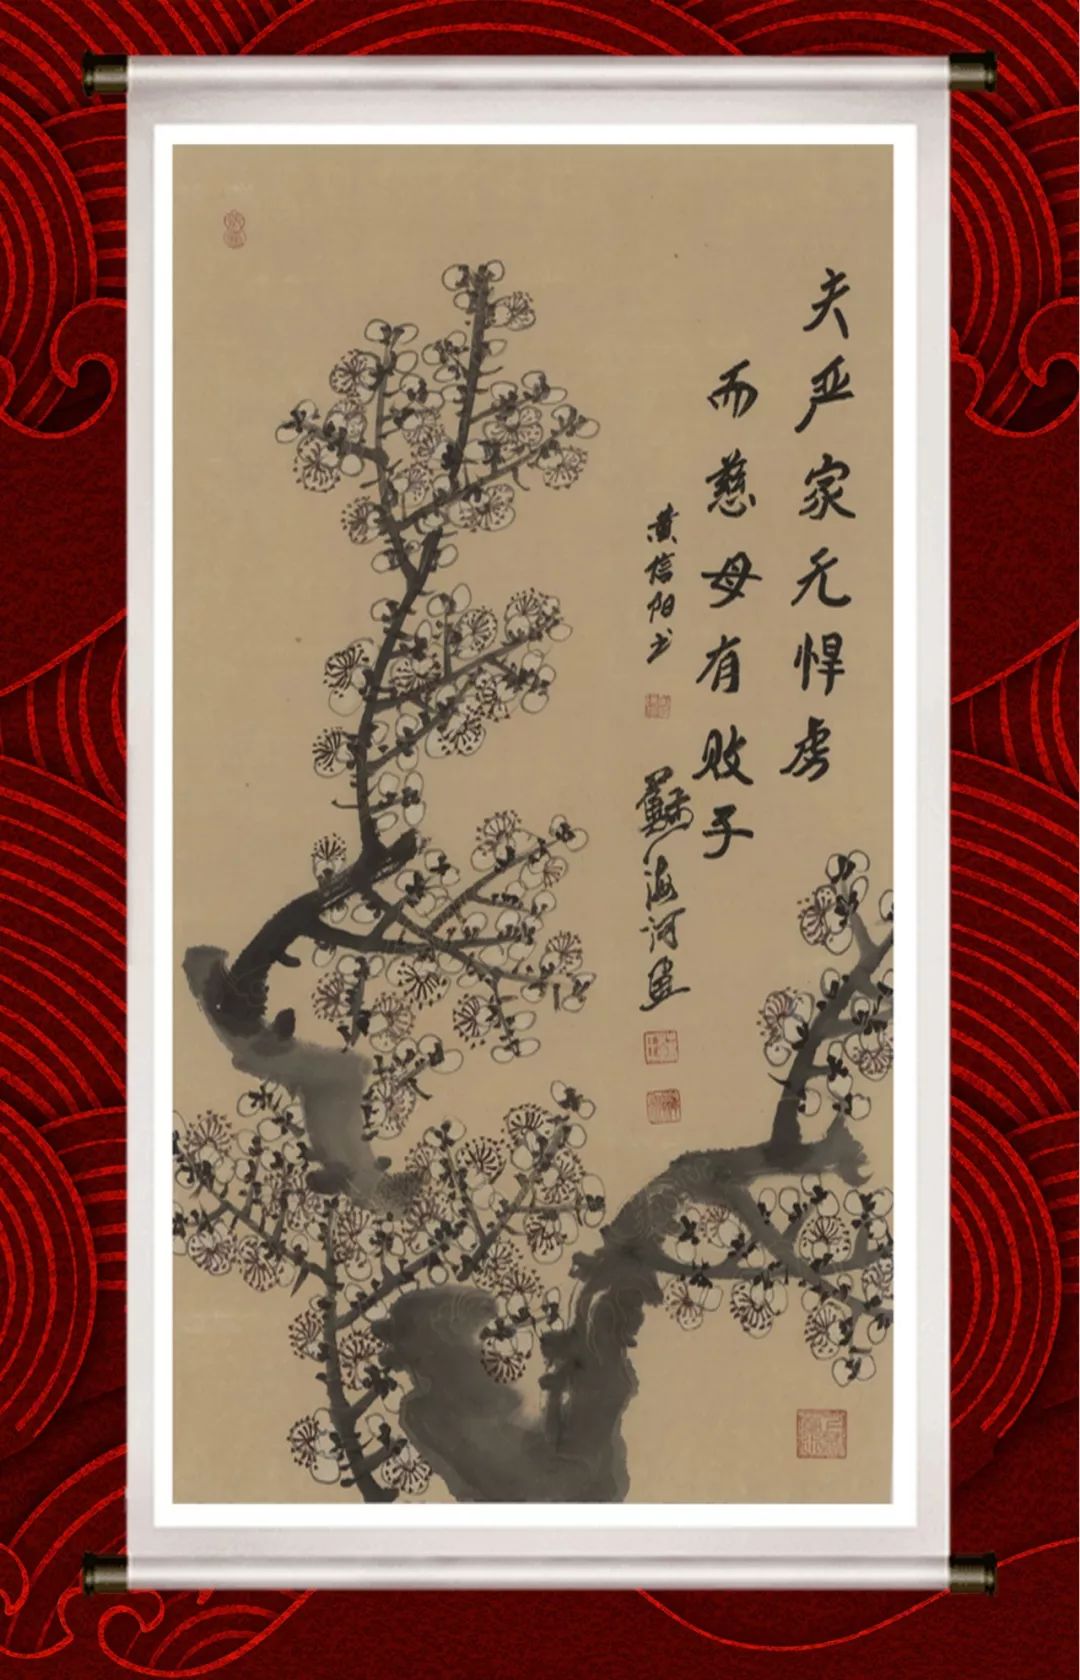 夫严家无悍虏
而慈母有败子
黄信阳书
苏海河画